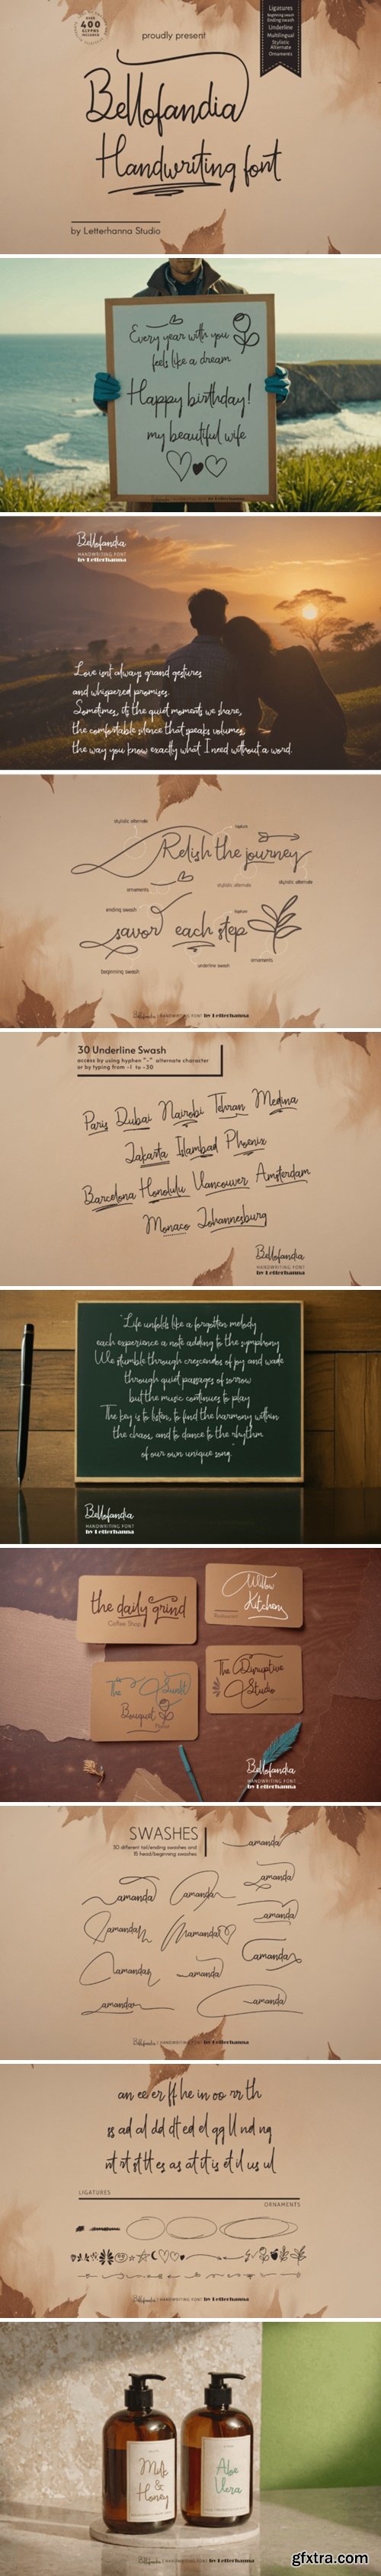 OVER
400
GLYPHS
INCLUDED
proudly present
Ligatures
Beginning swash
Ending Swash
Underline
Multilingual
Stylistic
Alternate
Ornaments
Bellofandia
Handwriting font
by Letterhanna Studio
Every year with you
feels like a dream
Happy birthday!
my beautiful wife
Bellofandia
HANDWRITING FONT
by Letterhanna
Love isn't always grand gestures
and whispered promises.
Sometimes, it's the quiet moments we share,
the comfortable silence that speaks volumes,
the way you know exactly what I need without a word.
stylistic alternate
ligature
Relish the journey
ornaments
stylistic alternate
stylistic alternate
ending swash
ligature
savor each step
beginning swash
underline swash
ornaments
Bellofandia | HANDWRITING FONT by Letterhanna
30 Underline Swash
access by using hyphen "-" alternate character
or by typing from -1 to -30
Paris Dubai Nairobi Tehran Medina
Jakarta Islambad Phoenix
Barcelona Honolulu Vancouver Amsterdam
Monaco Johannesburg
Bellofandia
HANDWRITING FONT
by Letterhanna
"Life unfolds like a forgotten melody
each experience a note adding to the symphony
We stumble through crescendos of joy and wade
through quiet passages of sorrow
but the music continues to play
The key is to listen, to find the harmony within
the chaos, and to dance to the rhythm
of our own unique song."
Bellofandia
HANDWRITING FONT
by Letterhanna
the daily grind
Coffee Shop
Willow
Kitchen
Restaurant
The Sunlit
Bouquet
The Disruptive
Studio
Bellofandia
HANDWRITING FONT
by Letterhanna
SWASHES
30 different tail/ending swashes and
15 head/beginning swashes
amanda
amanda
amanda
amanda
amanda
amanda
amanda
amanda
amanda
amanda
amanda
amanda
Bellofandia | HANDWRITING FONT by Letterhanna
an ee er ff he in oo rr th
ss ad al dd dt ed el gg ll nd ng
nt rt st tt es as at it is et il us ul
LIGATURES
ORNAMENTS
Bellofandia | HANDWRITING FONT by Letterhanna
Milk
&
Honey
Aloe
Vera
Bellofandia | HANDWRITING FONT by Letterhanna
gfxtra.com